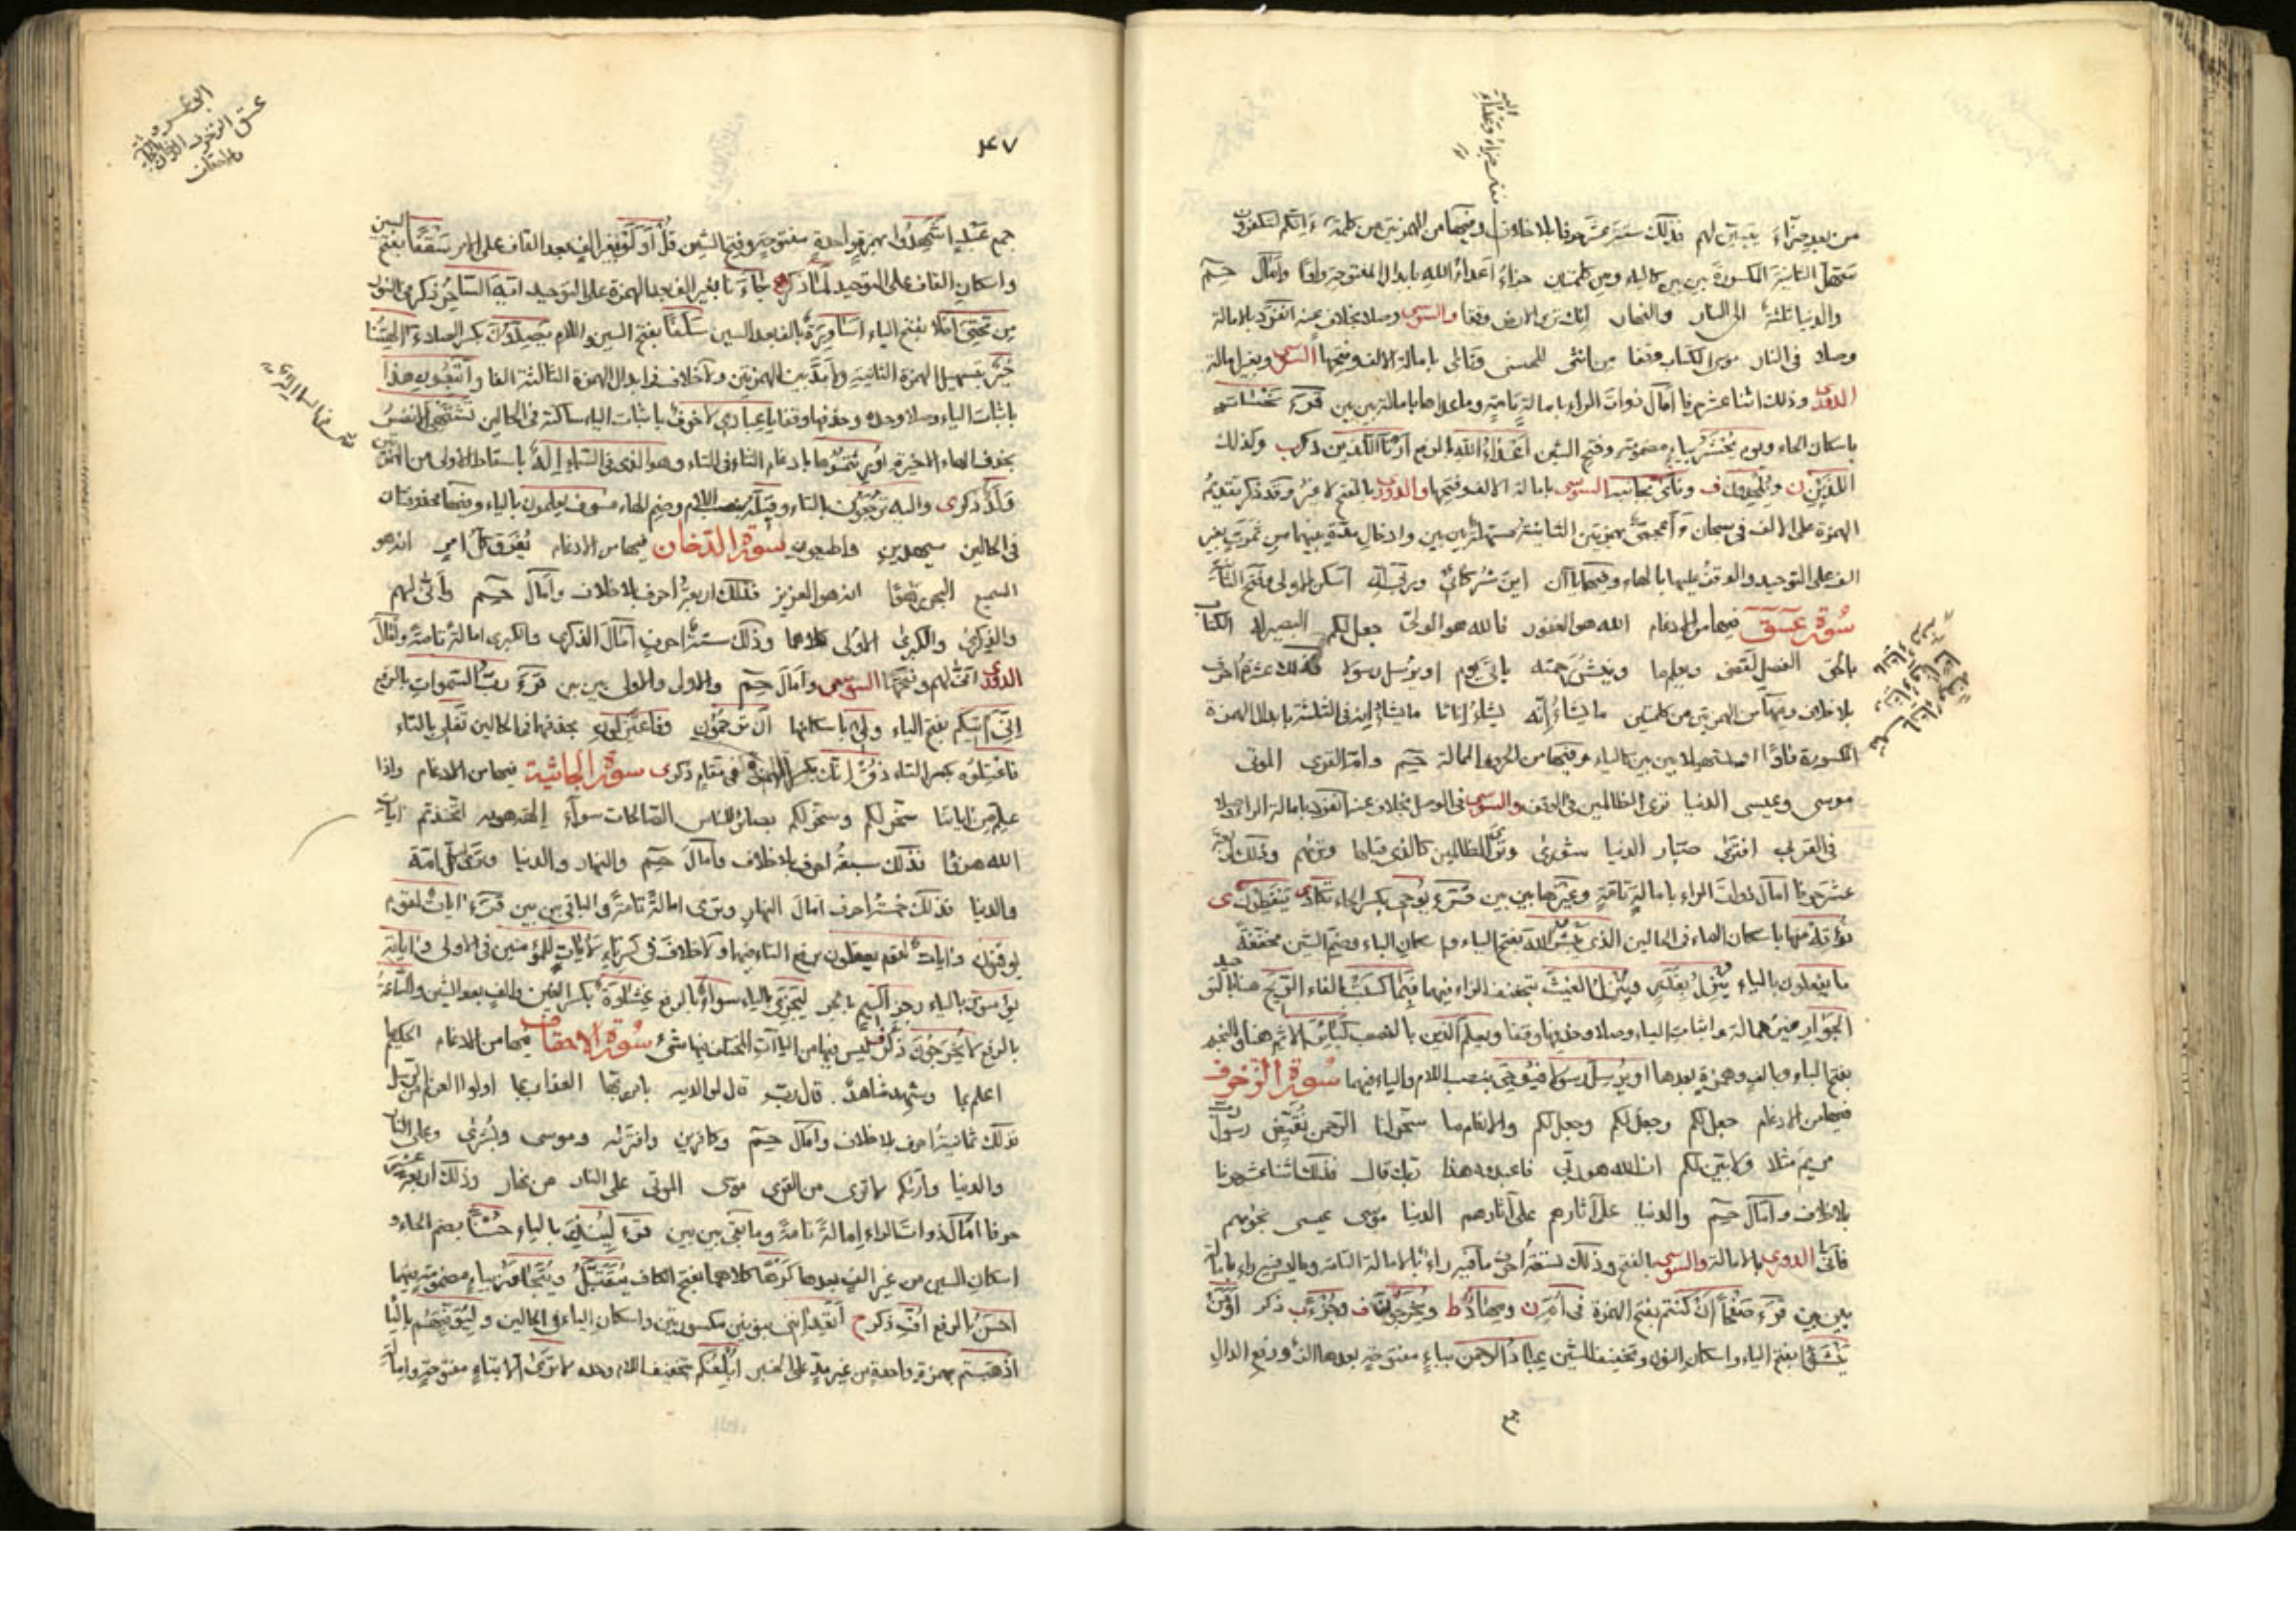 من بعد ضراء يتبين لهم فذلك ستة عشر حرفا بلا خلاف وفيها من الهمزتين من كلمة ءَإنكم لتكفرون
تسهيل الثانية المكسورة بين بين كالياء ومن كلمتين جزاءُ أعداء الله بابدال المفتوحة واوا وأمال حم
والدنيا ثلثة الى النار والنهار انك ترى الارض وقفا والسوسي وصلا بخلاف عنه انفرد بالامالة
وصلا في النار موسى الكتاب وقفا من انثى للحسنى ونأى بامالة الالف وفتحها السوسي وبغير امالة
الدوري وذلك اثنا عشر حرفا أمال ذوات الراء بامالةٍ تامةٍ وما عداها بامالة بين بين قرء نحسات
باسكان الحاء ويوم يُحشر بياءٍ مضمومةٍ وفتح الشين أعداءُ الله بالرفع أرنا اللذين ذكر وكذلك
اللذين ويلحدون ونأى بجانبه السوسي بامالة الالف وفتحها والدوري بالفتح لا غير وقد ذكر تقديم
الهمزة على الالف في سبحان ءَأعجمي بهمزتين الثانية مسهلة بين بين وادخال مدة بينهما من ثمرت بغير
الف على التوحيد والوقف عليها بالهاء وفيها ياآن أين شركائي وربي إنه اسكن الاولى وفتح الثانية
سورة عسق فيها من الادغام الله هو الغفور فالله هو الولي جعل لكم البصير له الكتاب
بالحق الفصل لقضي ويعلم ما وينشر رحمته يأتي يوم او يرسل رسولا فذلك عشرة أحرف
بلا خلاف وفيها من الهمزتين من كلمتين ما يشاء إنه يشاء إناثا ما يشاء إنه في الثلثة بابدال الهمزة
المكسورة واوًا او تسهيلا بين بين كالياء وفيها من الحروف الممالة حم وام القرى الموتى
موسى وعيسى الدنيا ترى الظالمين في الوقف والسوسي في الوصل بخلاف عنه انفرد بامالة الراء وصلا
في القربى افترى صبار الدنيا شورى وترى الظالمين كالذي قبلها وتريهم وذلك
عشر حرفا امال ذوات الراء بامالةٍ تامةٍ وغيرها بين بين قرء يوحي بكسر الحاء تكاد ينفطرن
نؤته منها باسكان الهاء في الحالين الذي يَبْشُر الله بفتح الياء واسكان الباء وضم الشين مخففة
ما يفعلون بالياء ينزل بقدر وينزل الغيث بتخفيف الزاء فيهما فبما كسبت بالفاء الريح هنا بالتوحيد
الجوار من غير امالة واثبات الياء وصلا وحذفها وقفا ويعلم الذين بالنصب كبائر الاثم هنا والنجم
بفتح الباء والف وهمزة بعدها او يرسل رسولا فيوحي بنصب اللام والياء فيهما سورة الزخرف
فيها من الادغام جعل لكم وجعل لكم وجعل لكم والانعام ما سخر لنا الرحمن نقيض رسول رب
مريم مثلا ولابين لكم ان الله هو ربي فاعبدوه هذا ربك قال فذلك اثنا عشر حرفا
بلا خلاف وأمال حم والدنيا على آثارهم على آثارهم الدنيا موسى عيسى نجويهم
فأنى الدوري بالامالة والسوسي بالفتح وذلك تسعة أحرف ما فيه راء بالامالة التامة وما ليس فيه راء بامالة
بين بين قرء صفحا أن كنتم بفتح الهمزة في أم ومهادا ويخرجون وجزء ذكر أومن
ينشؤا بفتح الياء واسكان النون وتخفيف الشين عباد الرحمن بباءٍ مفتوحةٍ بعدها الف ورفع الدال
جمع
٢٤٧
جمع عبد اشهدوا بهمزةٍ واحدةٍ مفتوحةٍ وفتح الشين قل أولو بغير الف بعد القاف على الامر سقفا بفتح السين
واسكان القاف على التوحيد لما ذكر جاءنا بغير الف بعد الهمزة على التوحيد ايه الساحر ذكر في النور
من تحتي افلا بفتح الياء اساورة بالف بعد السين سلفا بفتح السين واللام يصدون بكسر الصاد ءآلهتنا
خير بتسهيل الهمزة الثانية ولا مد بين الهمزتين ولا خلاف في ابدال الهمزة الثالثة الفا واتبعون هذا
باثبات الياء وصلا وحده وحذفها وقفا يا عبادي لا خوف باثبات الياء ساكنة في الحالين تشتهي الانفس
بحذف الهاء الاخيرة أورثتموها بادغام الثاء في التاء وهو الذي في السماء إله باسقاط الاولى من الهمزتين
ولد ذكر واليه ترجعون بالتاء وقيله بنصب اللام وضم الهاء فسوف يعلمون بالياء وفيها محذوفتان
في الحالين سيهدين واطيعون سورة الدخان فيها من الادغام يفرق كل امر انه هو
السميع البحر رهوًا انه هو العزيز فذلك اربعة أحرف بلا خلاف وأمال حم وأنى لهم
والذكرى والكبرى الاولى كلاهما وذلك ستة احرف أمال الذكرى والكبرى امالةً تامةً وأمال
الدوري أنى لهم وفتحها السوسي وأمال حم والاولى والاولى بين بين قرء رب السموات بالرفع
إني آتيكم بفتح الياء ولي باسكانها أن ترجمون وفاعتزلون بحذفهما في الحالين تغلي بالتاء
فاعتلوه بكسر التاء ذق إنك بكسر الهمزة في مقام ذكر سورة الجاثية فيها من الادغام واذا
علم من اياتنا سخر لكم وسخر لكم بصائر للناس الصالحات سواء إلهه هواه اتخذتم آيات
الله هزوا فذلك سبعة احرف بلا خلاف وأمال حم والنهار والدنيا وترى كل امة
والدنيا فذلك خمسة احرف أمال النهار وترى امالةً تامةً والباقي بين بين قرء ايات لقوم
يوقنون وايات لقوم يعقلون برفع التاء فيهما ولا خلاف في كسر تاء لآيات للمؤمنين في الاولى واياته
يؤمنون بالياء رجز أليم بالجر ليجزي بالياء سواء بالرفع غشاوة بكسر الغين والف بعد الشين والساعة
بالرفع لا يخرجون ذكر ليس فيها من الياآت المختلف فيها شيء سورة الاحقاف فيها من الادغام الحكيم ما
اعلم بما وشهد شاهد قال رب قال لوالديه بامر ربها العذاب بما اولوا العزم من الرسل
فذلك ثمانية احرف بلا خلاف وأمال حم وكافرين وافتريه وموسى وبشرى وعلى النار
والدنيا وأريكم لا ترى من القرى موسى الموتى على النار من نهار وذلك اربعة عشر
حرفا أمال ذوات الراء إمالةً تامةً وما بقي بين بين قرء لينذر بالياء حسنا بضم الحاء و
اسكان السين من غير الف بعدها كرها كلاهما بفتح الكاف يتقبل ويتجاوز بياءٍ مضمومةٍ فيهما
احسن بالرفع أف ذكر أتعدانني بنونين مكسورتين واسكان الياء في الحالين وليوفيهم بالياء
أذهبتم بهمزة واحدةٍ من غير مدٍ على الخبر أبلغكم بتخفيف اللام وحده لا ترى الا بتاءٍ مفتوحةٍ وامالة